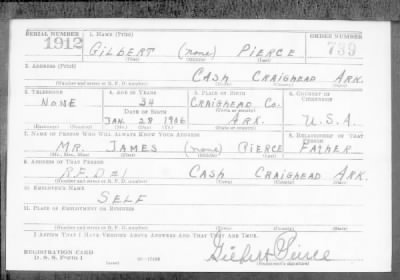 SERIAL NUMBER 1. NAME (Print) ORDER NUMBER
1912 GILBERT (none) PIERCE 789
(First) (Middle) (Last)
2. ADDRESS (Print)
CASH CRAIGHEAD ARK.
(Number and street or R. F. D. number) (Town) (County) (State)
3. TELEPHONE 4. AGE IN YEARS 5. PLACE OF BIRTH 6. COUNTRY OF CITIZENSHIP
NONE 34 CRAIGHEAD CO.
DATE OF BIRTH (Town or county)
JAN. 28 1906 ARK. U.S.A.
(Exchange) (Number) (Mo.) (Day) (Yr.) (State or country)
7. NAME OF PERSON WHO WILL ALWAYS KNOW YOUR ADDRESS 8. RELATIONSHIP OF THAT PERSON
MR. JAMES (none) PIERCE FATHER
(Mr., Mrs., Miss) (First) (Middle) (Last)
9. ADDRESS OF THAT PERSON
R.F.D. #1 CASH CRAIGHEAD ARK.
(Number and street or R. F. D. number) (Town) (County) (State)
10. EMPLOYER'S NAME
SELF
11. PLACE OF EMPLOYMENT OR BUSINESS
(Number and street or R. F. D. number) (Town) (County) (State)
I AFFIRM THAT I HAVE VERIFIED ABOVE ANSWERS AND THAT THEY ARE TRUE.
REGISTRATION CARD
D. S. S. Form 1
Gilbert Pierce
(Registrant's signature)